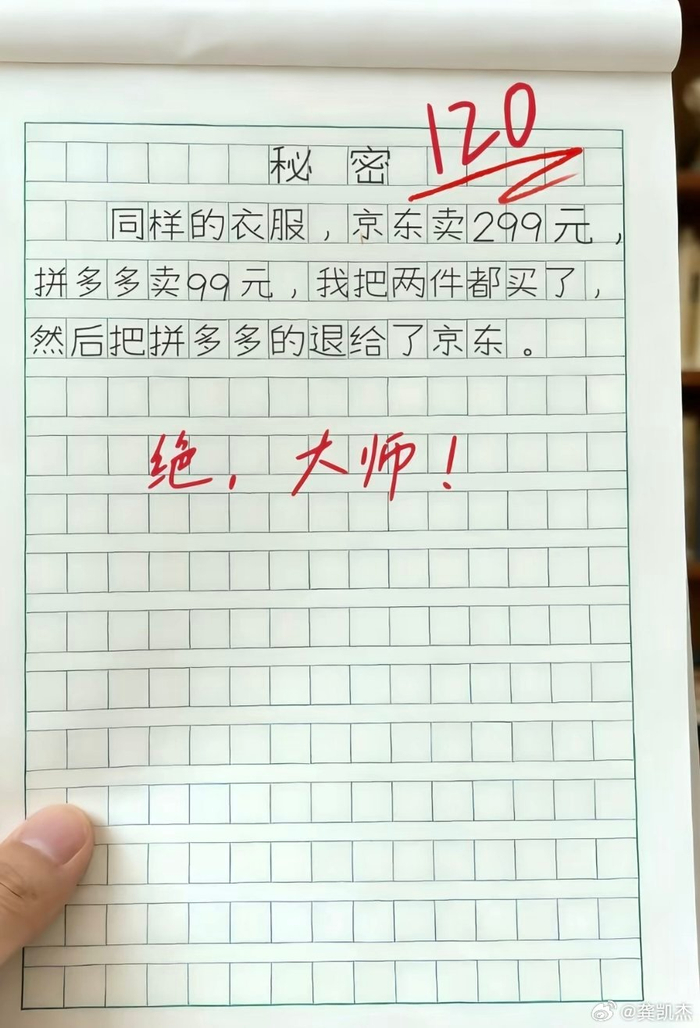 120
秘密
同样的衣服，京东卖299元，
拼多多卖99元，我把两件都买了，
然后把拼多多的退给了京东。
绝，大师！
@龚凯杰